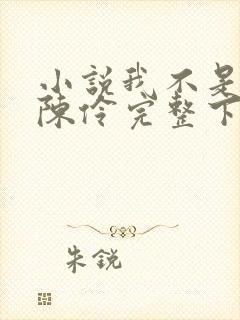 小説我不是
陳伶完整下
朱銳